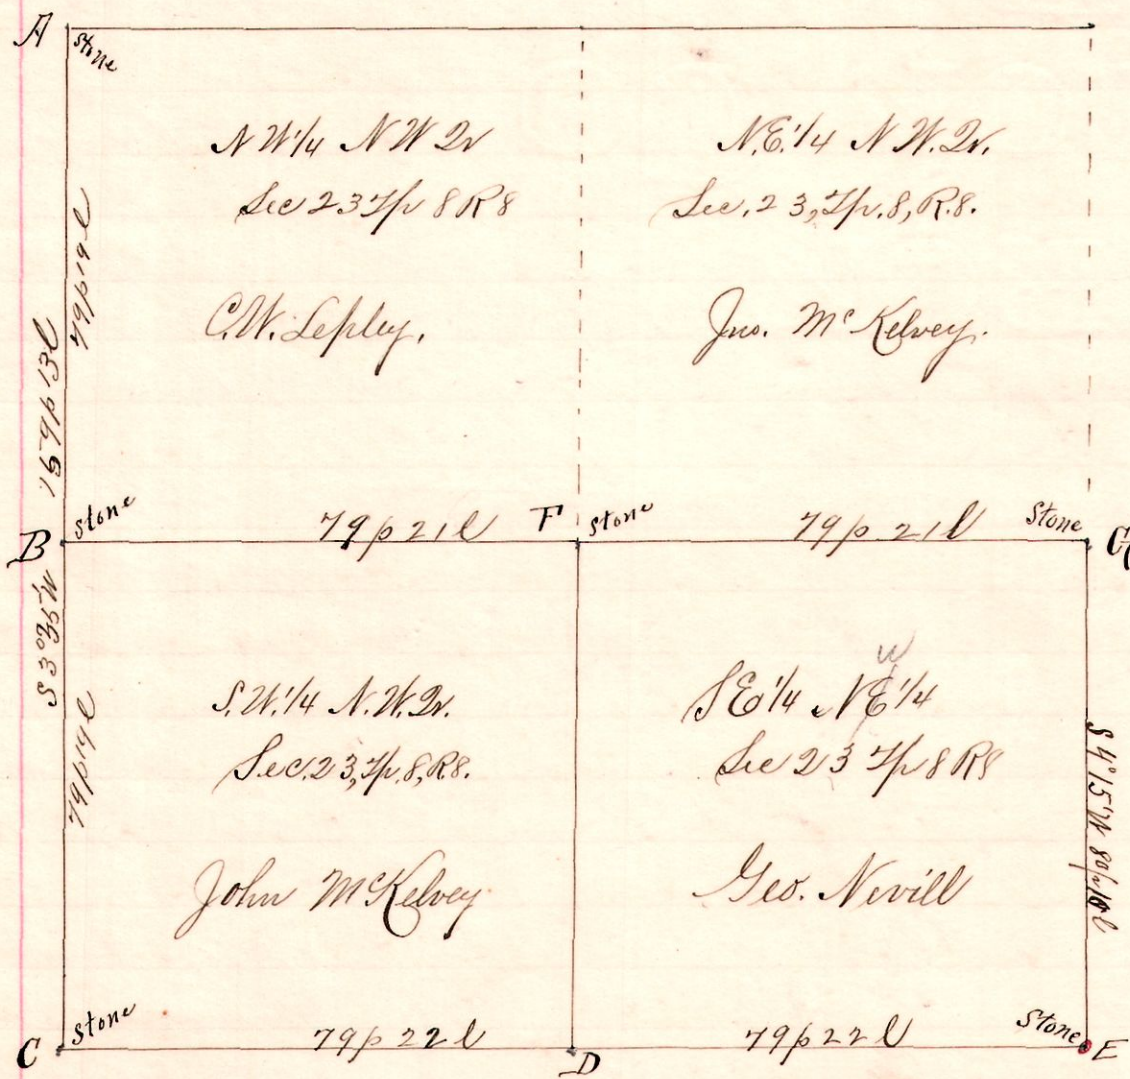 A
Stone
N W 1/4 N W Qr
Sec 23 Tp 8 R 8
C.W. Lepley.
N.E. 1/4 N.W. Qr.
Sec. 23, Tp. 8, R. 8.
Jno. McKelvey.
79p 19l
159p 13l
B
Stone
79p 21l
F
Stone
79p 21l
Stone
G
S 3° 35' W
79p 19l
S.W. 1/4 N.W. Qr.
Sec. 23, Tp. 8, R 8.
John McKelvey
W
S E 1/4 N E 1/4
Sec 23 Tp 8 R 8
Geo. Nevill
S 4° 15' W 80p
C
Stone
79p 22l
D
79p 22l
Stone
E